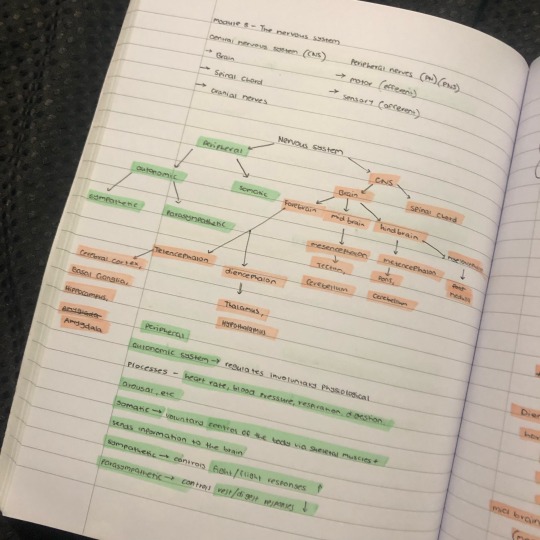 Module 8 - The nervous system
Central nervous system (CNS)
Peripheral nerves (PN)(PNS)
→ Brain
→ motor (efferent)
→ Spinal Chord
→ sensory (afferent)
→ Cranial nerves
Nervous system
Peripheral
CNS
autonomic
Somatic
Brain
Spinal Chord
Sympathetic
Parasympathetic
Forebrain
mid brain
hind brain
Telencephalon
diencephalon
mesencephalon
metencephalon
Cerebral cortex,
Basal Ganglia,
Hippocampus,
Amygdala
Tectum,
Cerebellum
Pons,
Cerebellum
Thalamus,
Hypothalamus
Peripheral
autonomic system → regulates involuntary physiological
processes - heart rate, blood pressure, respiration, digestion,
arousal, etc
Somatic → voluntary control of the body via skeletal muscles +
sends information to the brain
Sympathetic → controls fight/flight responses ↑
Parasympathetic → controls rest/digest responses ↓